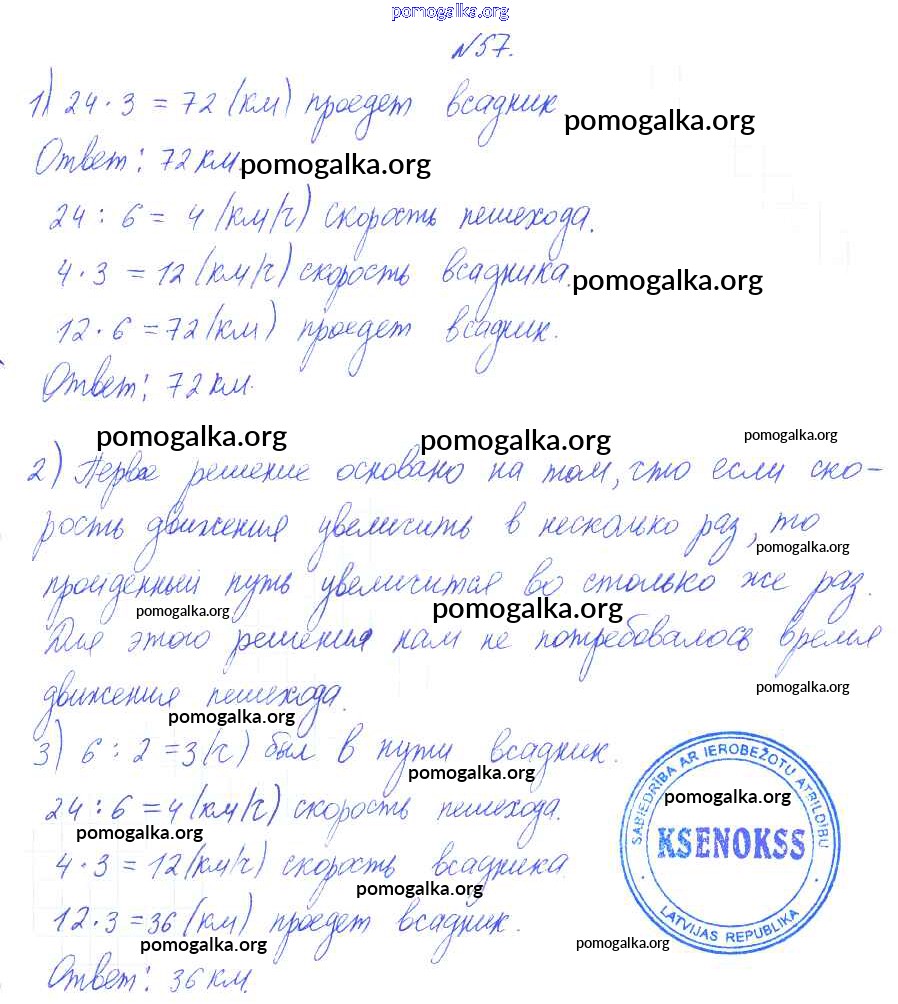 pomogalka.org
№57.
1) 24 · 3 = 72 (км) проедет всадник pomogalka.org
Ответ: 72 км. pomogalka.org
24 : 6 = 4 (км/ч) скорость пешехода.
4 · 3 = 12 (км/ч) скорость всадника. pomogalka.org
12 · 6 = 72 (км) проедет всадник.
Ответ: 72 км.
pomogalka.org pomogalka.org pomogalka.org
2) Первое решение основано на том, что если ско-
рость движения увеличить в несколько раз, то
pomogalka.org
пройденный путь увеличится во столько же раз.
pomogalka.org pomogalka.org
Для этого решения нам не потребовалось время
pomogalka.org
движения пешехода.
pomogalka.org
3) 6 : 2 = 3 (ч) был в пути всадник.
pomogalka.org
24 : 6 = 4 (км/ч) скорость пешехода.
pomogalka.org
4 · 3 = 12 (км/ч) скорость всадника
pomogalka.org
12 · 3 = 36 (км) проедет всадник.
pomogalka.org pomogalka.org
Ответ: 36 км.
SABIEDRĪBA AR IEROBEŽOTU ATBILDĪBU
pomogalka.org
KSENOKSS
LATVIJAS REPUBLIKA